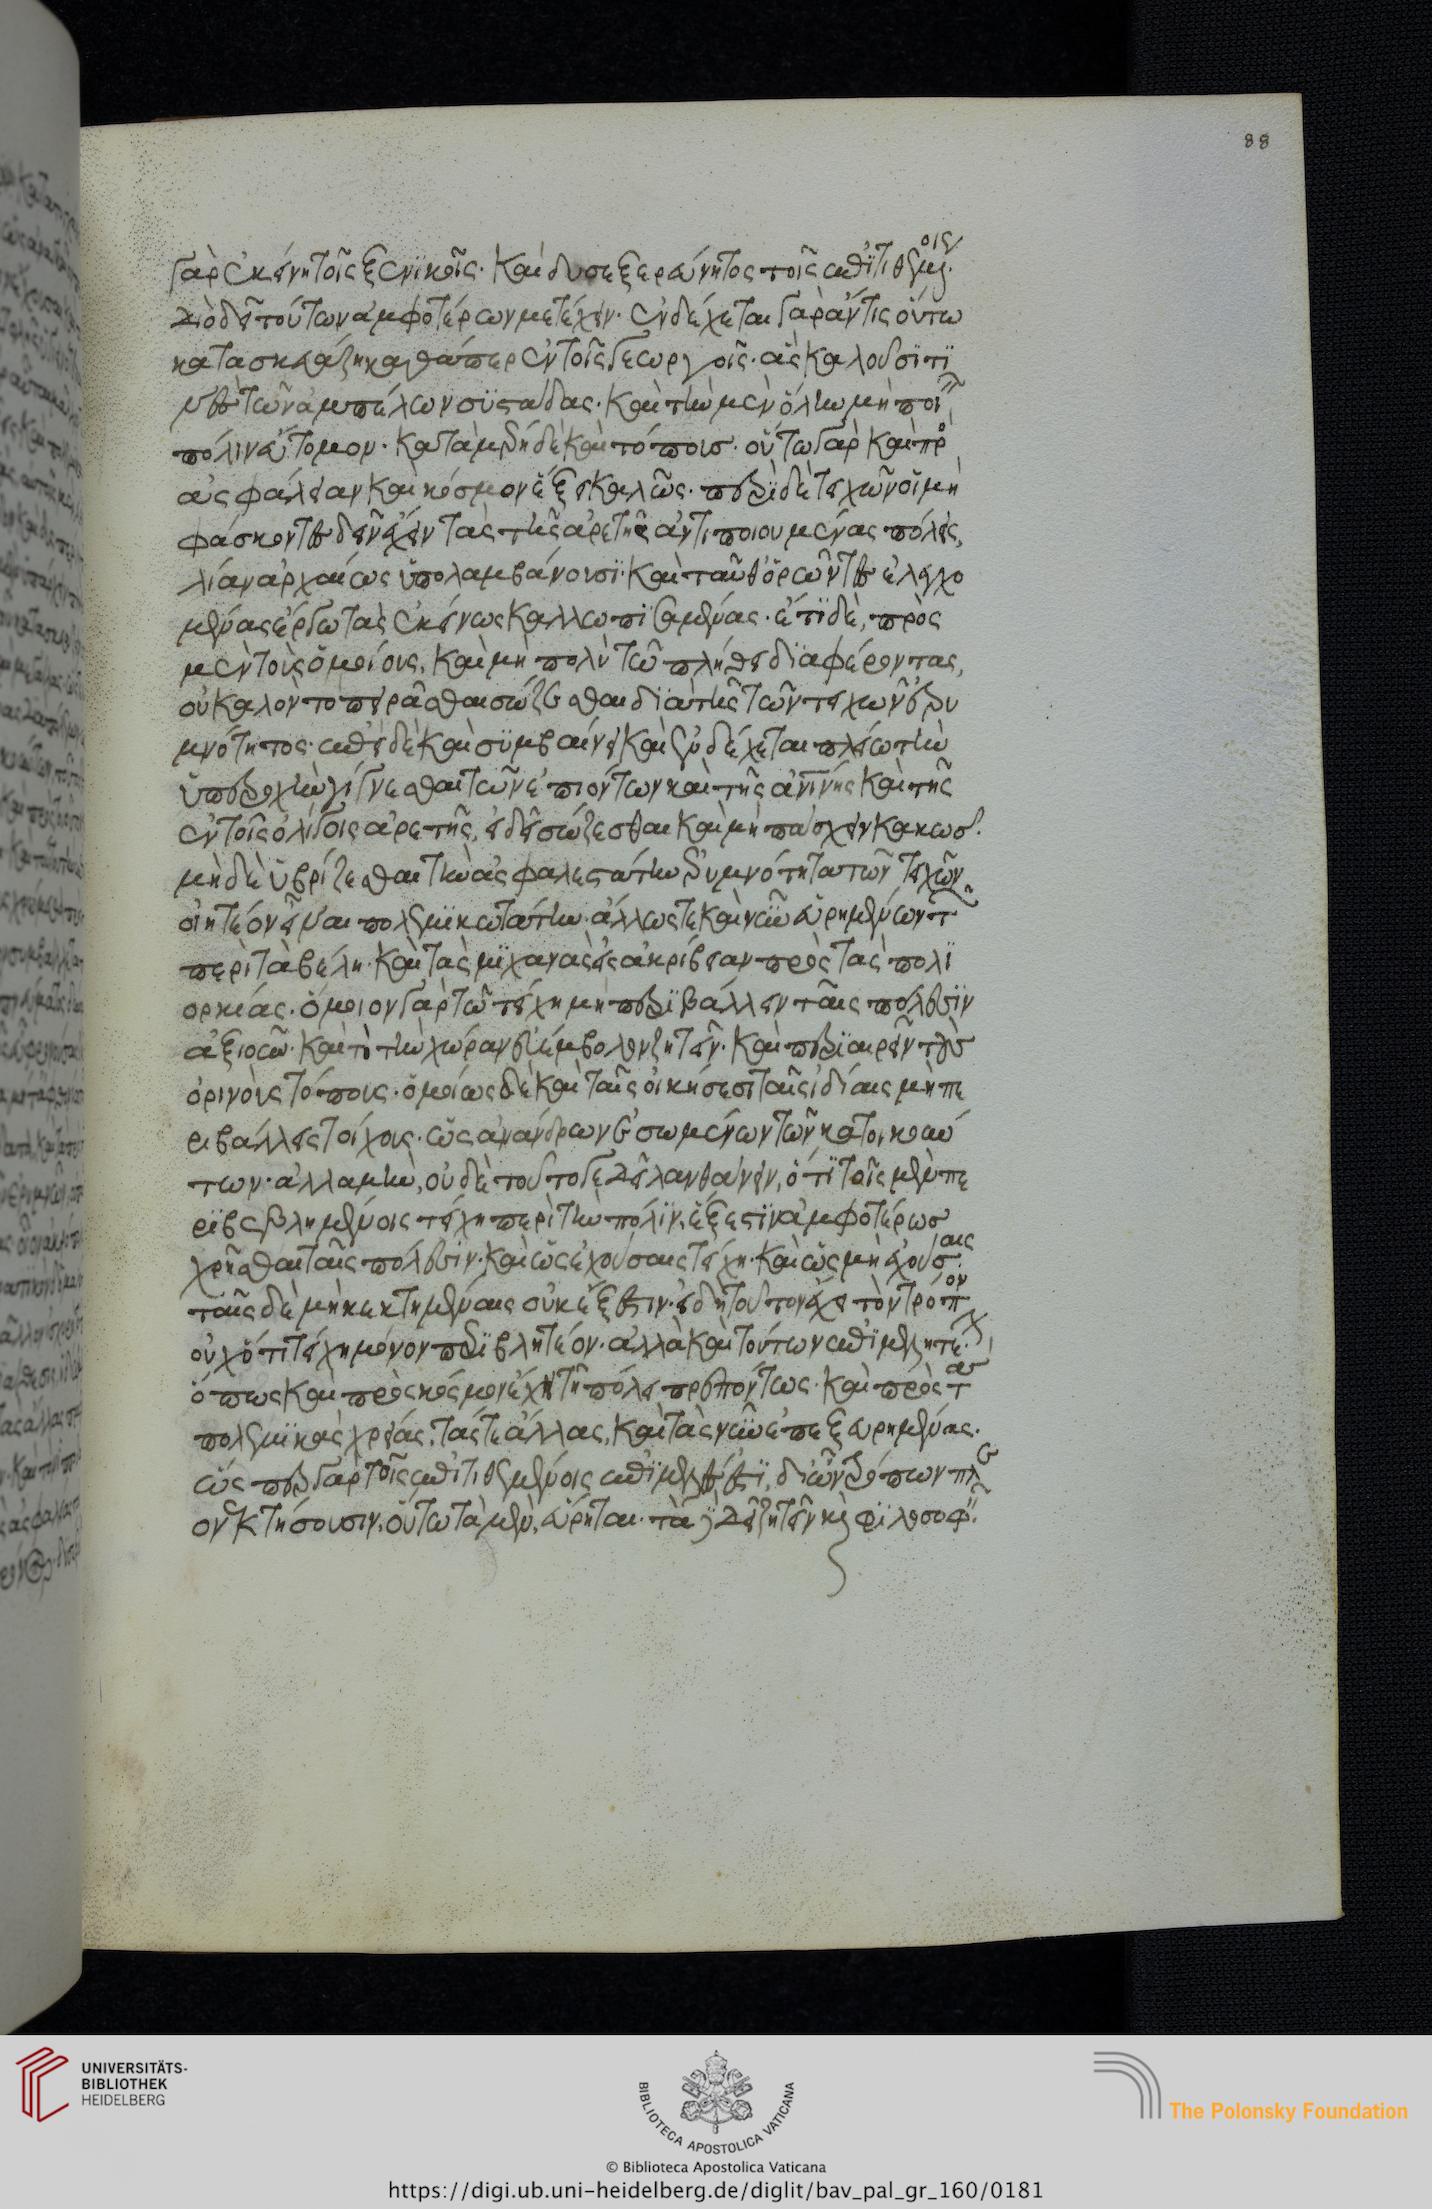 γὰρ ἐκείνη τοῖς ξενικοῖς· καὶ δυσεξερεύνητος τοῖς ἐπιτιθεμένοις·
διὸ δεῖ τούτων ἀμφοτέρων μετέχειν· ἐνδέχεται γὰρ ἄν τις οὕτω
κατασκευάζη καθάπερ ἐν τοῖς γεωργοῖς· ἃς καλοῦσί τι
νες τῶν ἀμπέλων συστάδας· καὶ τὴν μὲν ὅλην μὴ ποιεῖν
πόλιν εὔτομον· κατὰ μέρη δὲ καὶ τόπους· οὕτω γὰρ καὶ πρὸς
ἀσφάλειαν καὶ κόσμον ἕξει καλῶς· περὶ δὲ τειχῶν οἱ μὴ
φάσκοντες δεῖν ἔχειν τὰς τῆς ἀρετῆς ἀντιποιουμένας πόλεις,
λίαν ἀρχαίως ὑπολαμβάνουσι· καὶ ταῦθ' ὁρῶντες ἐλεγχο
μένας ἔργω τὰς ἐκείνως καλλωπισαμένας· ἔτι δὲ, πρὸς
μὲν τοὺς ὁμοίους, καὶ μὴ πολὺ τῶ πλήθει διαφέροντας,
οὐ καλὸν τὸ πειρᾶσθαι σώζεσθαι διὰ τῆς τῶν τειχῶν ἐρυ
μνότητος· ἐπεὶ δὲ καὶ συμβαίνει καὶ ἐνδέχεται πλείω τὴν
ὑπεροχὴν γίγνεσθαι τῶν ἐπιόντων καὶ τῆς ἀνίνης καὶ τῆς
ἐν τοῖς ὀλίγοις ἀρετῆς, εἰ δεῖ σώζεσθαι καὶ μὴ πάσχειν κακως·
μὴ δὲ ὑβρίζεσθαι τὴν ἀσφαλεστάτην ἐρυμνότητα τῶν τειχῶν
οἰητέον εἶναι πολεμικωτάτην· ἄλλως τε καὶ νῦν εὑρημένων τῶν
περὶ τὰ βέλη· καὶ τὰς μηχανὰς εἰς ἀκρίβειαν πρὸς τὰς πολι
ορκίας· ὅμοιον γὰρ τῶ τείχη μὴ περιβάλλειν ταῖς πόλεσιν
ἀξιοῦν· καὶ τὸ τὴν χώραν εὐέμβολον ζητεῖν· καὶ περιαιρεῖν τοὺς
ὀρινοὺς τόπους· ὁμοίως δὲ καὶ ταῖς οἰκήσεσι ταῖς ἰδίαις μὴ πε
ριβάλλειν τοίχοις· ὡς ἀνάνδρων ἐσωμένων τῶν κατοικούν
των· ἀλλα μὴν, οὐδὲ τοῦτο γε δεῖ λανθάνειν, ὅτι τοῖς μὲν πε
ριβεβλημένοις τείχη περὶ τὴν πόλιν, ἔξεστιν ἀμφοτέρως
χρῆσθαι ταῖς πόλεσιν· καὶ ὡς ἐχούσαις τείχη· καὶ ὡς μὴ ἐχούσαις·
ταῖς δὲ μὴ κεκτημέναις οὐκ ἔξεστιν· εἰ δὴ τοῦτον ἔχει τὸν τρόπον
οὐχ ὅτι τείχη μόνον περιβλητέον· ἀλλὰ καὶ τούτων ἐπιμελητέον,
ὅπως καὶ πρὸς κόσμον ἔχη τῆ πόλει πρεπόντως· καὶ πρὸς τὰς
πολεμικὰς χρείας, τάς τε ἄλλας, καὶ τὰς νῦν ἐπεξευρημένας·
ὥσπερ γὰρ τοῖς ἐπιτιθεμένοις ἐπιμελές ἐστι, δι' ὧν τρόπων πλε
ονεκτήσουσιν, οὕτω τὰ μὲν, εὕρηται· τὰ δὲ δεῖ ζητεῖν καὶ φιλοσοφεῖν.
88
UNIVERSITÄTS-
BIBLIOTHEK
HEIDELBERG
BIBLIOTECA APOSTOLICA VATICANA
© Biblioteca Apostolica Vaticana
The Polonsky Foundation
https://digi.ub.uni-heidelberg.de/diglit/bav_pal_gr_160/0181